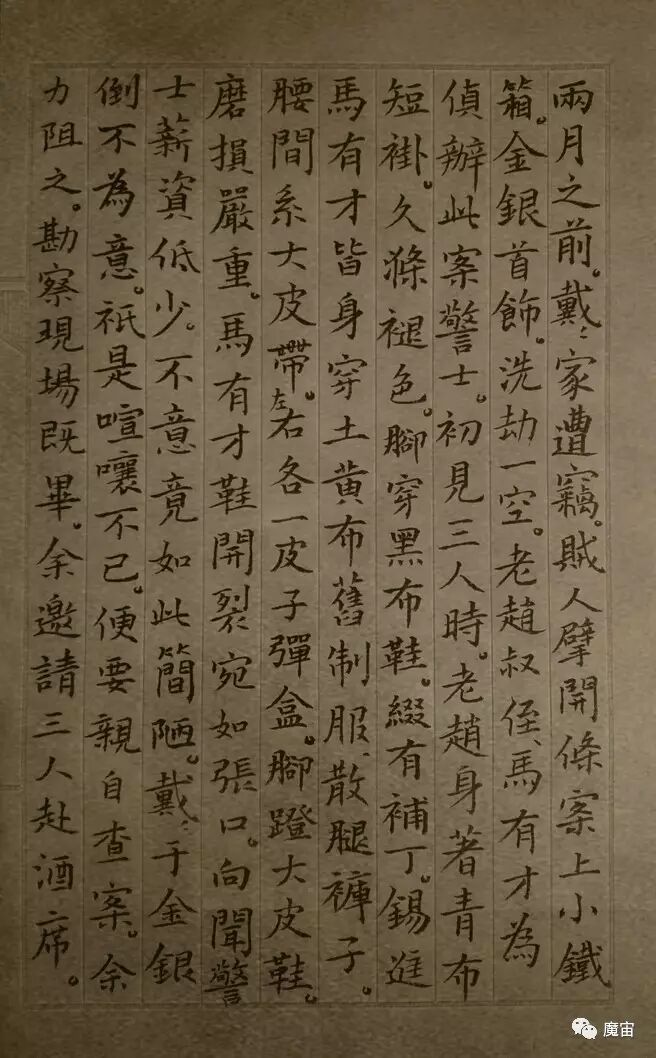 兩月之前。戴:家遭竊。賊人擘開條案上小鐵
箱。金銀首飾。洗劫一空。老趙叔侄、馬有才為
偵辦此案警士。初見三人時。老趙身著青布
短褂。久滌褪色。腳穿黑布鞋。綴有補丁。錫進
馬有才皆身穿土黃布舊制服、散腿褲子。
腰間系大皮帶。左右各一皮子彈盒。腳蹬大皮鞋。
磨損嚴重。馬有才鞋開裂宛如張口。向聞警
士薪資低少。不意竟如此簡陋。戴:于金銀
倒不為意。祇是喧嚷不已。便要親自查案。余
力阻之。勘察現場既畢。余邀請三人赴酒席。
魔宙